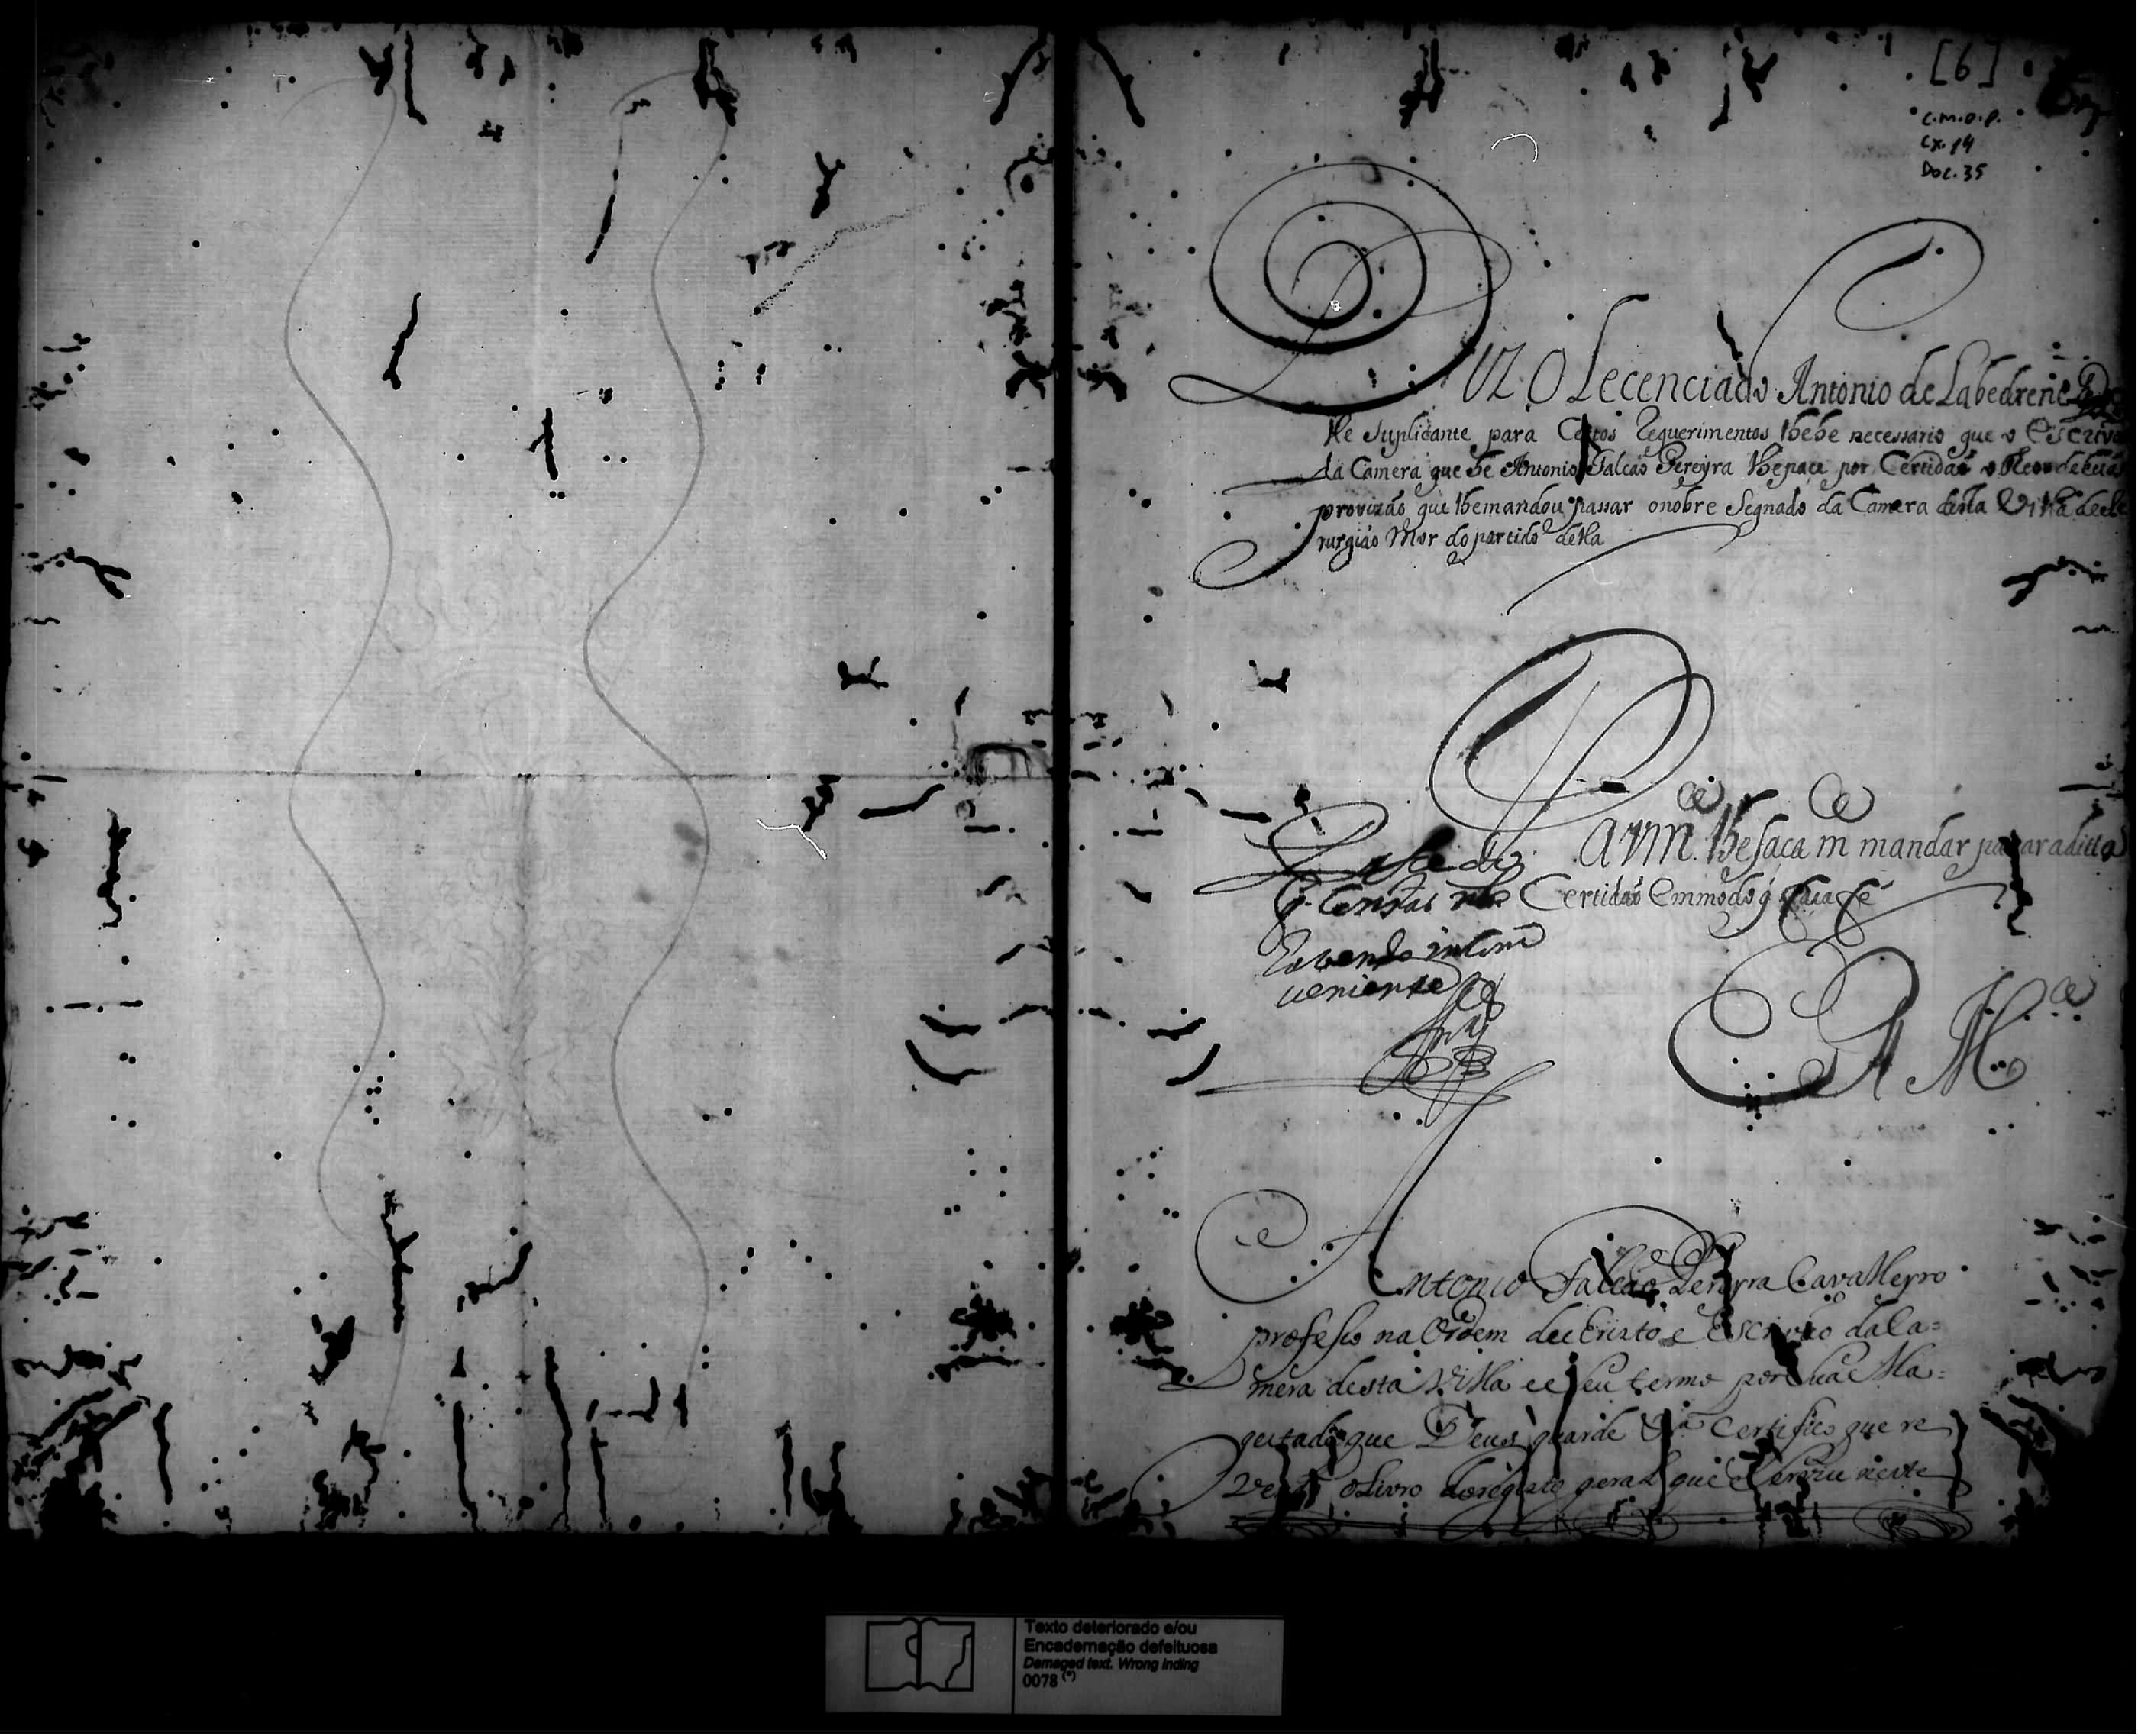 [6]
C.M.O.P.
Cx. 14
Doc. 35
DIZ O Lecenciado Antonio de Labedrene
Ele Suplicante para Certos Requerimentos lhe he necessario que o Escrivão
da Camera que he Antonio Falcaõ Pereyra lhe pace por Certidaõ o theor da
provizaõ que lhe mandou passar o nobre Segnado da Camera desta Villa de
rurgiaõ Mor do partido della
P
a Vm.ces lhe faça m.ce mandar passar a ditta
Certidaõ em modo q̃ faça fé
E R M.ce
Passe do
q̃ Constar naõ
havendo incon
veniente
Antonio Falcaõ Pereyra Cavalleyro
profeso na Ordem de Cristo e Escrivaõ da Ca=
mera desta Villa e seu termo por Sua Ma=
gestade que Deus guarde & Certifico que re
vendo o Livro do registo geral que
Texto deteriorado e/ou
Encadernação defeituosa
Damaged text. Wrong inding
0078 (*)